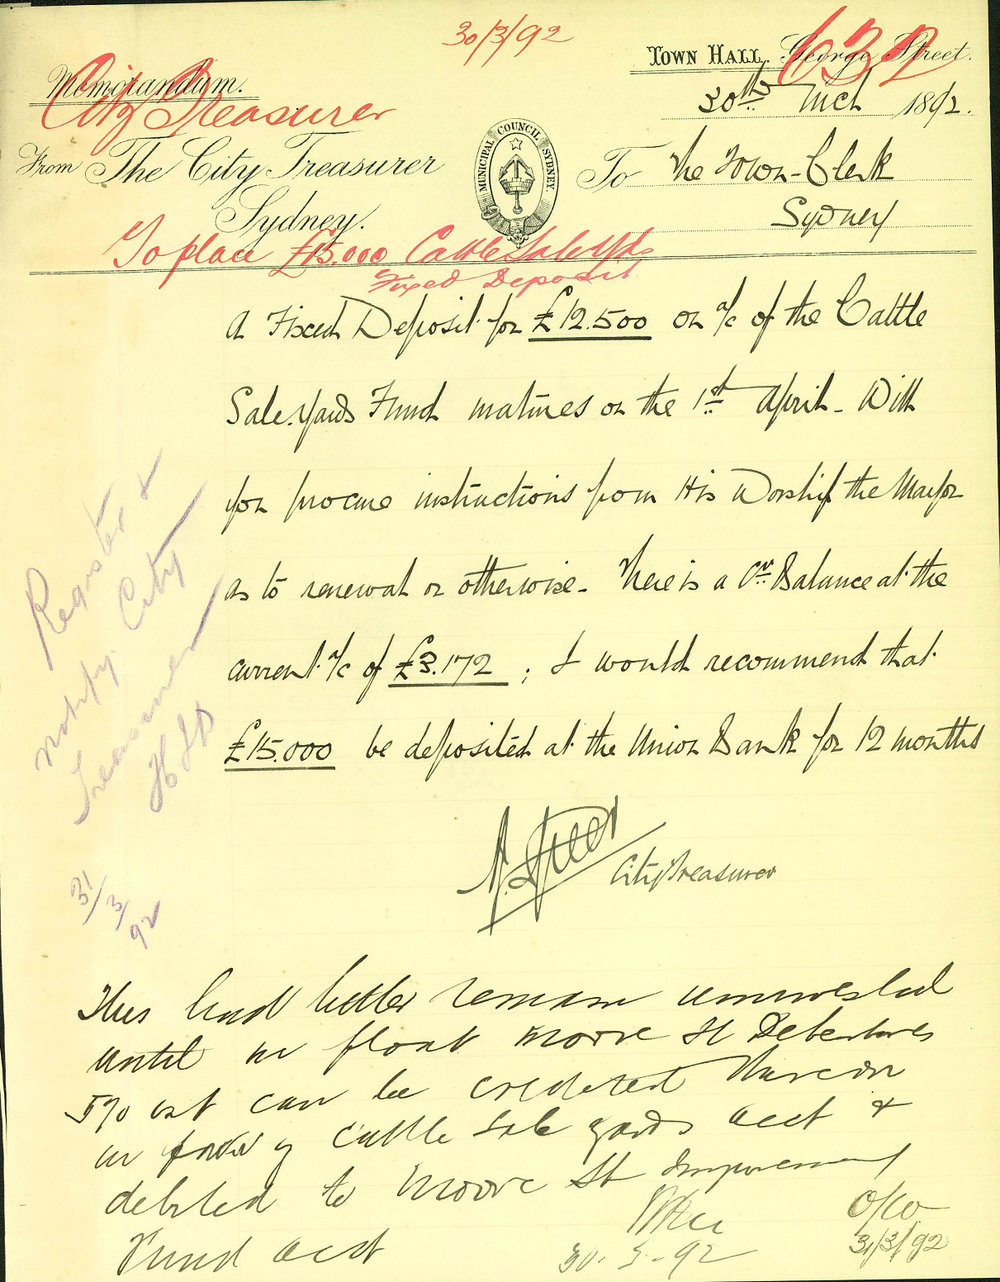 30/3/92
Memorandum.
City Treasurer
TOWN HALL, George Street.
632
30th Mch 1892.
From The City Treasurer
Sydney.
MUNICIPAL COUNCIL SYDNEY.
To The Town-Clerk
Sydney
To place £15.000 Cattle Sale Yds
Fixed Deposit
A Fixed Deposit for £12.500 on a/c of the Cattle
Sale-Yards Fund matures on the 1st April. Will
you procure instructions from His Worship the Mayor
as to renewal or otherwise. There is a Cr. Balance at the
current a/c of £3.172; I would recommend that
£15.000 be deposited at the Union Bank for 12 months
City Treasurer
Register &
notify City
Treasurer
31/3/92
This had better remain uninvested
until we float Moore St Debentures
5% int can be credited thereon
in favor of Cattle Sale yards acct &
debited to Moore St Improvement
Fund acct
30-3-92
31/3/92